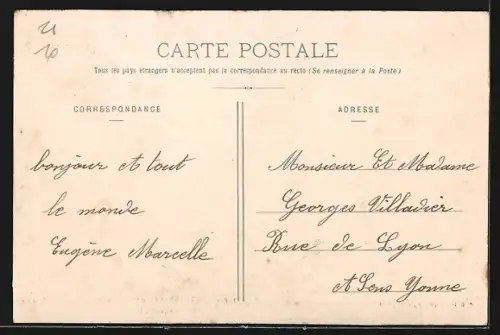 CARTE POSTALE
Tous les pays étrangers n'acceptent pas la correspondance au recto (Se renseigner à la Poste)
CORRESPONDANCE
bonjour et tout
le monde
Eugène Marcelle
ADRESSE
Monsieur Et Madame
Georges Villadier
Rue de Lyon
A Sens Yonne